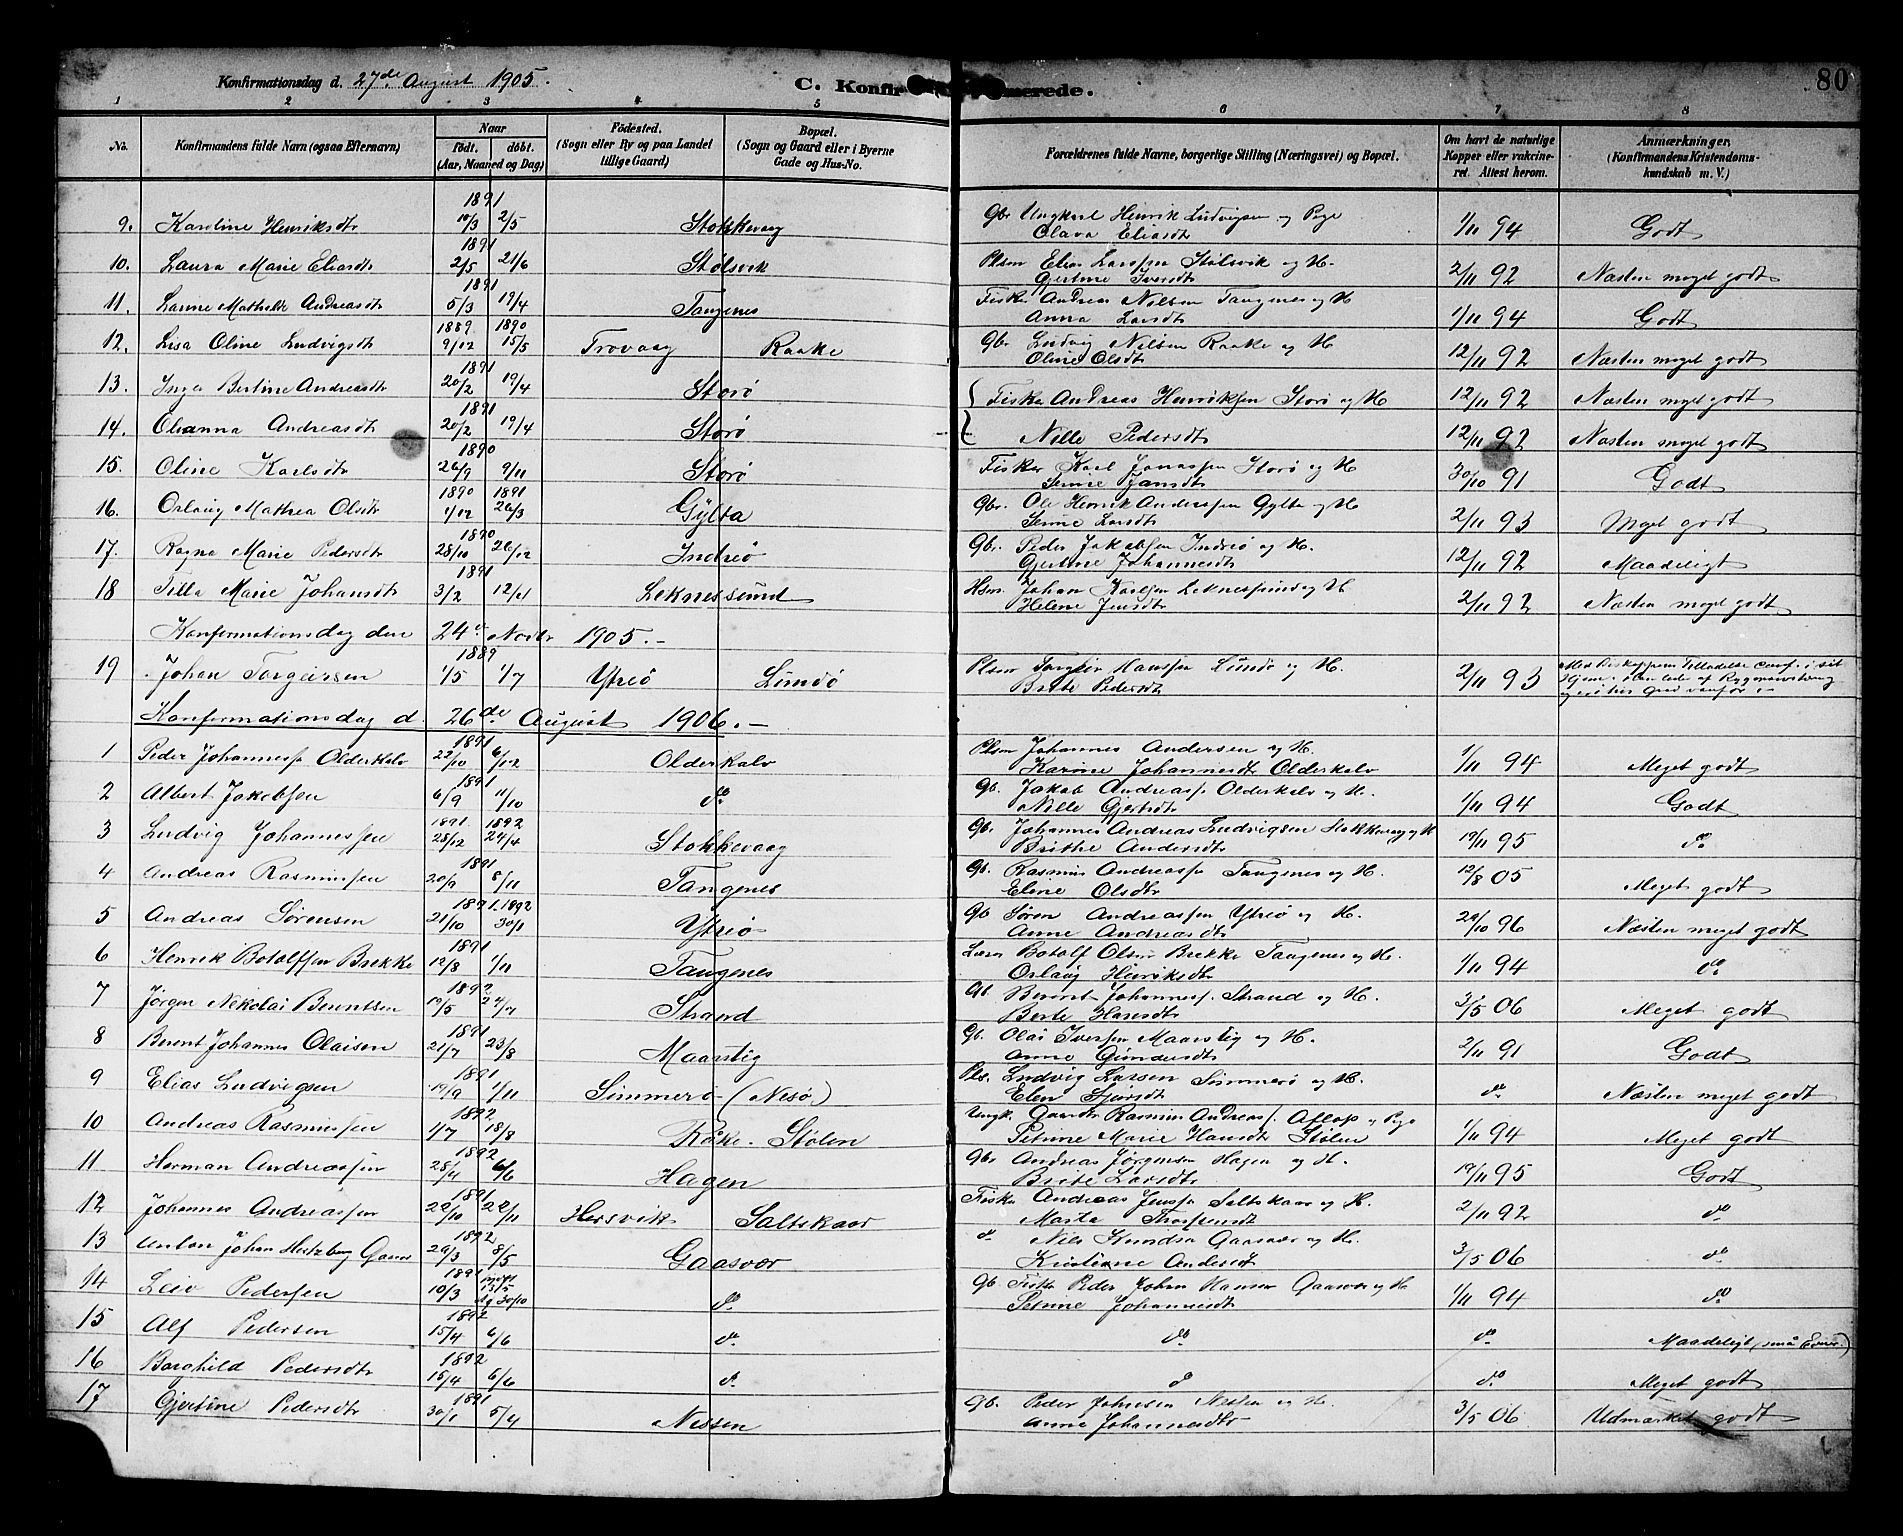 Konfirmationsdag d. 27de August 1905. C. Konfir merede. 80
1 2 3 4 5 6 7 8
No. Konfirmandens fulde Navn (ogsaa Efternavn) Naar født. døbt. (Aar, Maaned og Dag) Fødested. (Sogn eller By og paa Landet tillige Gaard) Bopæl. (Sogn og Gaard eller i Byerne Gade og Hus-No. Forældrenes fulde Navne, borgerlige Stilling (Næringsvei) og Bopæl. Om havt de naturlige Kopper eller vakcineret. Attest herom. Anmærkninger. (Konfirmandens Kristendomskundskab m. V.)
1891
9. Karoline Henriksdtr 10/3 2/5 Stokkevaag Gbr Ungkarl Henrik Ludvigsen og Pige 1/11 94 Godt
Olava Eliasdtr
1891
10. Laura Marie Eliasdtr 2/5 21/6 Stølsvik Plsm Elias Larssen Stølsvik og H. 2/11 92 Næsten meget godt
Gjertine Iversdtr
1891
11. Mathilde Andreasdtr 5/3 19/4 Tangenes Fisker Andreas Nilsen Tangenes og H 1/11 94 Godt
Anna Larsdtr
1889. 1890
12. Lisa Oline Ludvigsdtr 9/12 15/3 Trovaag Raake Gbr Ludvig Nilsen Raake og H 12/11 92 Næsten meget godt
Oline Olsdtr
1891
13. Inga Bertine Andreasdtr 20/2 19/4 Storø Fisker Andreas Henriksen Storø og H 12/11 92 Næsten meget godt
1891
14. Olianna Andreasdtr 20/2 19/4 Storø Nille Pedersdtr 12/11 92 Næsten meget godt
1890
15. Oline Karlsdtr 26/9 9/11 Storø Fisker Karl Jonassen Storø og H 30/10 91 Godt
Jensdtr
1890 1891
16. Orlaug Mathea Olsdtr 1/12 26/3 Gylta Gbr. Ole Henrik Anderssen Gylta og H 2/11 93 Meget godt
Larsdtr
1890
17. Ragna Marie Pedersdtr 28/10 26/12 Indreø Gb. Peder Jakobsen Indreø og H. 12/11 92 Maadeligt
Gjertine Johannesdtr
1891
18 Tilla Marie Johansdtr 3/2 12/4 Leknessund Hsm. Johan Karlsen Leknessund og H 2/11 92 Næsten meget godt
Helene Jensdtr
Konfirmationsdag den 24de Novbr 1905.-
1889
19 Johan Torgeirsen 1/5 1/7 Ytreø Lundø Plsm Torgeir Hanssen Lundø og H. 2/11 93 Med Biskoppens Tilladelse conf. i sit
Brite Pedersdtr Hjem
Konfirmationsdag d. 26de August 1906.-
1891
1 Peder Johannessen Olderkalv 22/10 6/12 Olderkalv Plsm Johannes Andersen og H. 1/11 94 Meget godt
Karine Johannesdtr Olderkalv
1891
2 Albert Jakobsen 6/9 11/10 do Gb. Jakob Andreass. Olderkalv og H. 1/11 94 Godt
Nille Gjertsdtr
1891. 1892
3 Ludvig Johannessen 28/12 24/4 Stokkevaag Gb. Johannes Andreas Ludvigsen Stokkevaag og H 19/11 95 do
Brithe Andersdtr
1891
4 Andreas Rasmussen 20/9 8/11 Tangenes Gb. Rasmus Andreassen Tangenes og H. 12/8 05 Meget godt
Eline Olsdtr
1891. 1892
5 Andreas Sørensen 21/10 30/1 Ytreø Gb Søren Andreassen Ytreø og H. 29/10 96 Næsten meget godt
Anne Andreasdtr
1891
6 Henrik Botolfsen Brekke 12/8 1/11 Tangenes Lærer Botolf Olsen Brekke Tangenes og H. 1/11 94 do
Orlaug Henriksdtr
1892
7 Jørgen Nikolai Berentsen 19/5 24/7 Strand Gb. Berent Johanness. Strand og H. 3/5 06 Meget godt
Berte Hansdtr
1891
8 Berent Johannes Olaisen 21/7 23/8 Maarstig Gb. Olai Iversen Maarstig og H. 2/11 91 Godt
Anne Gundersdtr
1891
9 Elias Ludvigsen 19/9 1/11 Simmerø (Nesø) Pls. Ludvig Larsen Simmerø og H. do Næsten meget godt
Elen Sjursdtr
1892
10 Andreas Rasmussen 1/7 18/8 Røke Stølen Ungk. Rasmus Andreass. og Pige 1/11 94 Meget godt
Petrine Marie Hansdtr Stølen
1892
11 Herman Andreassen 28/4 6/6 Hagen Gbr Andreas Jørgensen Hagen og H. 19/11 95 Godt
Brite Larsdtr
1891
12 Johannes Andreassen 22/10 22/11 Hersvik Saltskaar Fisker Andreas Jenssen Saltskaar og H. 2/11 92 do
Marta
1892
13 Anton Johan Hertzberg 29/3 8/5 Gaasvær do Nils Knudsen Gaasvær og H. 3/5 06 do
Kristiane Andersdtr
1891
14 Leiv Pedersen 10/3 13/5 30/10 do Gb Fisker Peder Johan Hansen Gaasvær og H 1/11 94 do
Petrine Johannesdtr
1892
15 Alf Pedersen 15/4 6/6 do do do Maadeligt (små Evner.)
1892
16 Borghild Pedersdtr 15/4 6/6 do do do Meget godt
1891
17 Gjertine Pedersdtr 30/1 5/4 Nessen Gb. Peder Johnsen Nessen og H 3/5 06 Udmærket godt
Anna Johannesdtr